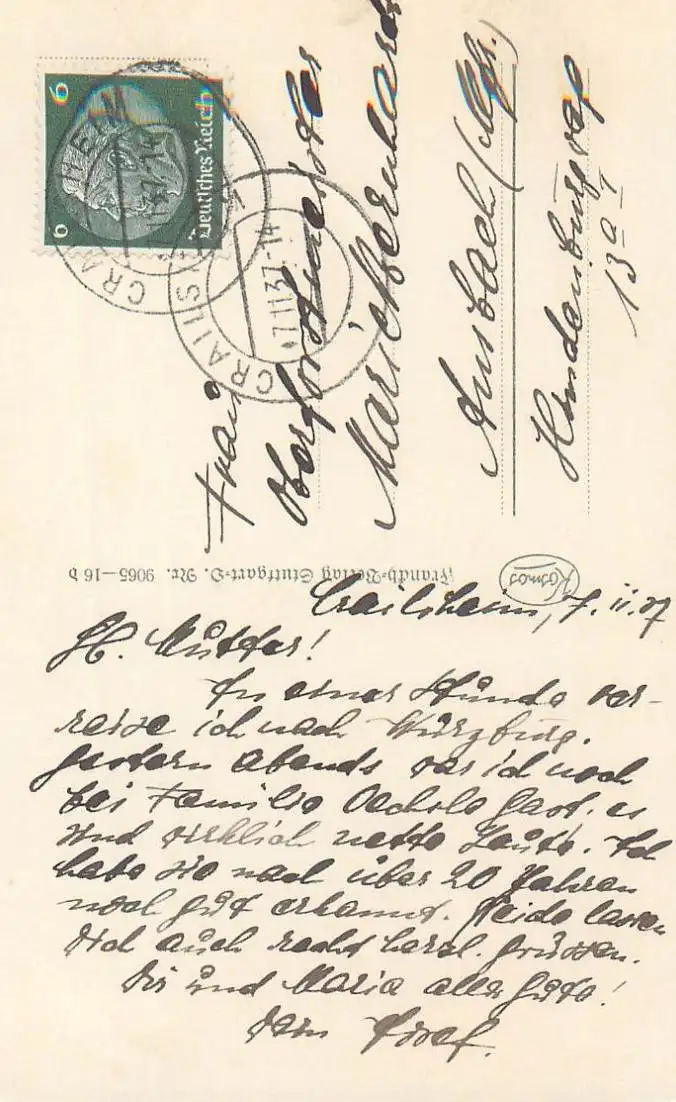 6 6
Deutsches Reich
CRAILSHEIM
CRAILSHEIM
7.11.37.-14
Frau
Oberforstmeister
Marie Bernhard
Ansbach (Mfr.)
Hindenburgstr.
13
Franckh-Verlag Stuttgart-O. Nr. 9065—16 b
Kosmos
Crailsheim, 7.11.37
Lb. Mutter!
In einer Stunde ver-
reise ich nach Würzburg.
Gestern Abends war ich noch
bei Familie Oechsle Gast. es
sind wirklich nette Leute. Ich
habe sie nach über 20 Jahren
noch gut erkannt. Beide lassen
Dich auch recht herzl. grüssen.
Dir und Maria alles Gute!
Dein Josef.